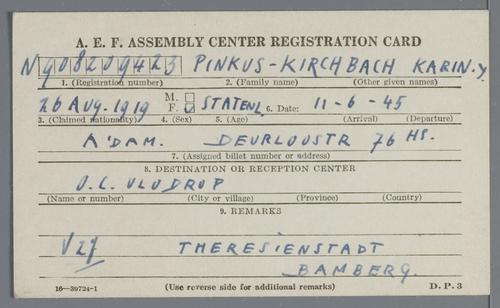 A. E. F. ASSEMBLY CENTER REGISTRATION CARD
N908209423 PINKUS-KIRCHBACH KARIN.Y.
1. (Registration number) 2. (Family name) (Other given names)
26 AUG. 1919 M. F. STATENL 6. Date: 11-6-45
3. (Claimed nationality) 4. (Sex) 5. (Age) (Arrival) (Departure)
A'DAM. DEURLOOSTR 76 HS.
7. (Assigned billet number or address)
8. DESTINATION OR RECEPTION CENTER
O.C. VLODROP
(Name or number) (City or village) (Province) (Country)
9. REMARKS
V27 THERESIENSTADT
BAMBERG.
16—39724-1 (Use reverse side for additional remarks) D. P. 3